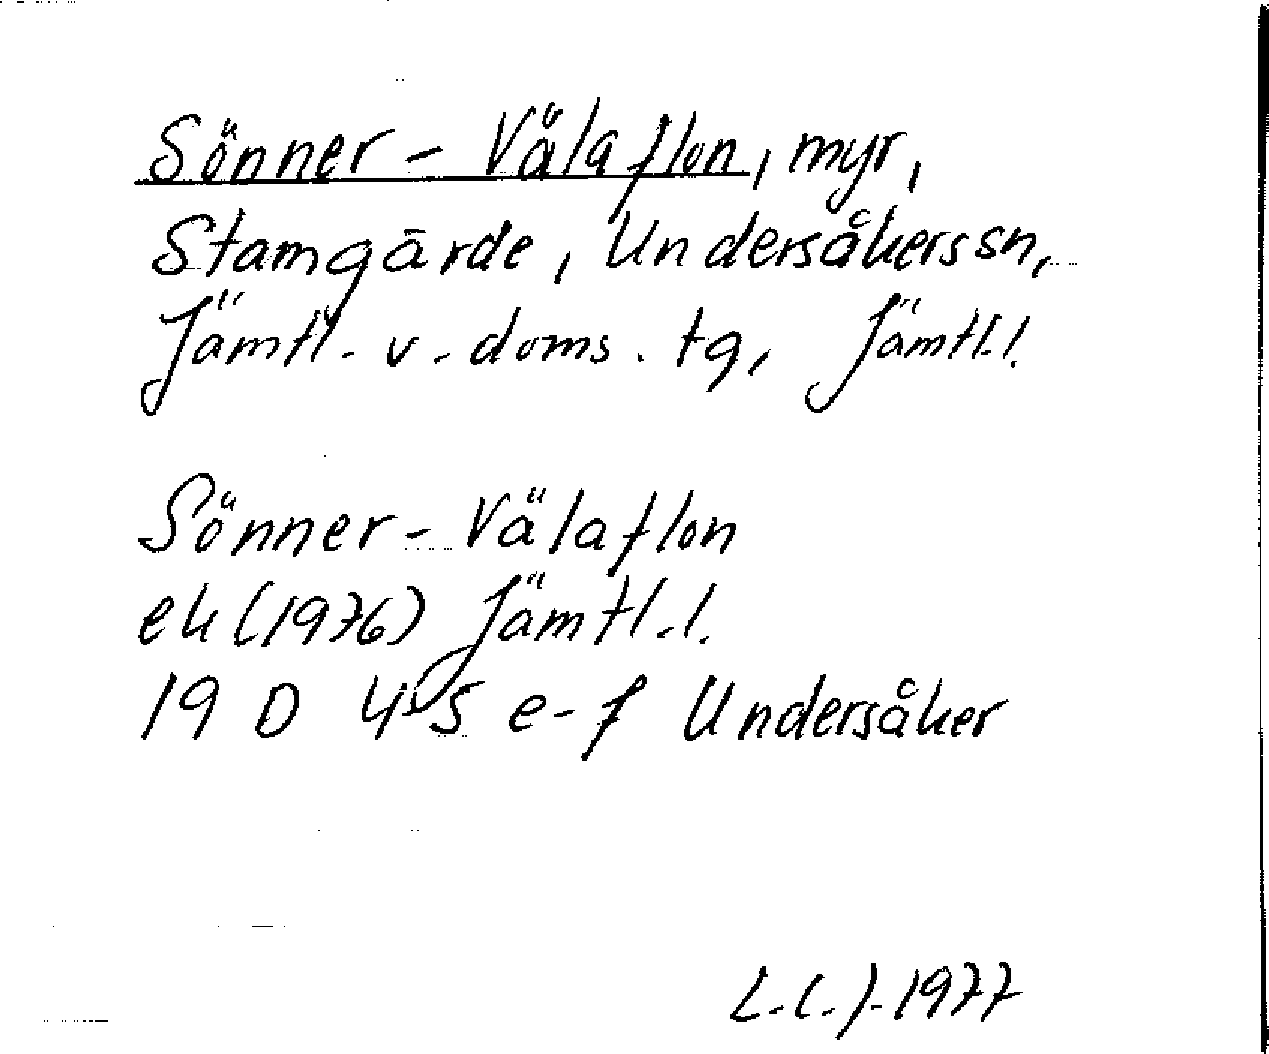 Sönner-Välaflon, myr,
Stamgärde, Undersåkers sn,
Jämtl. v. doms. tg, Jämtl.l.
Sönner-Välaflon
ek (1976) Jämtl.l.
19 D 4-5 e-f Undersåker
L.C.J. 1977